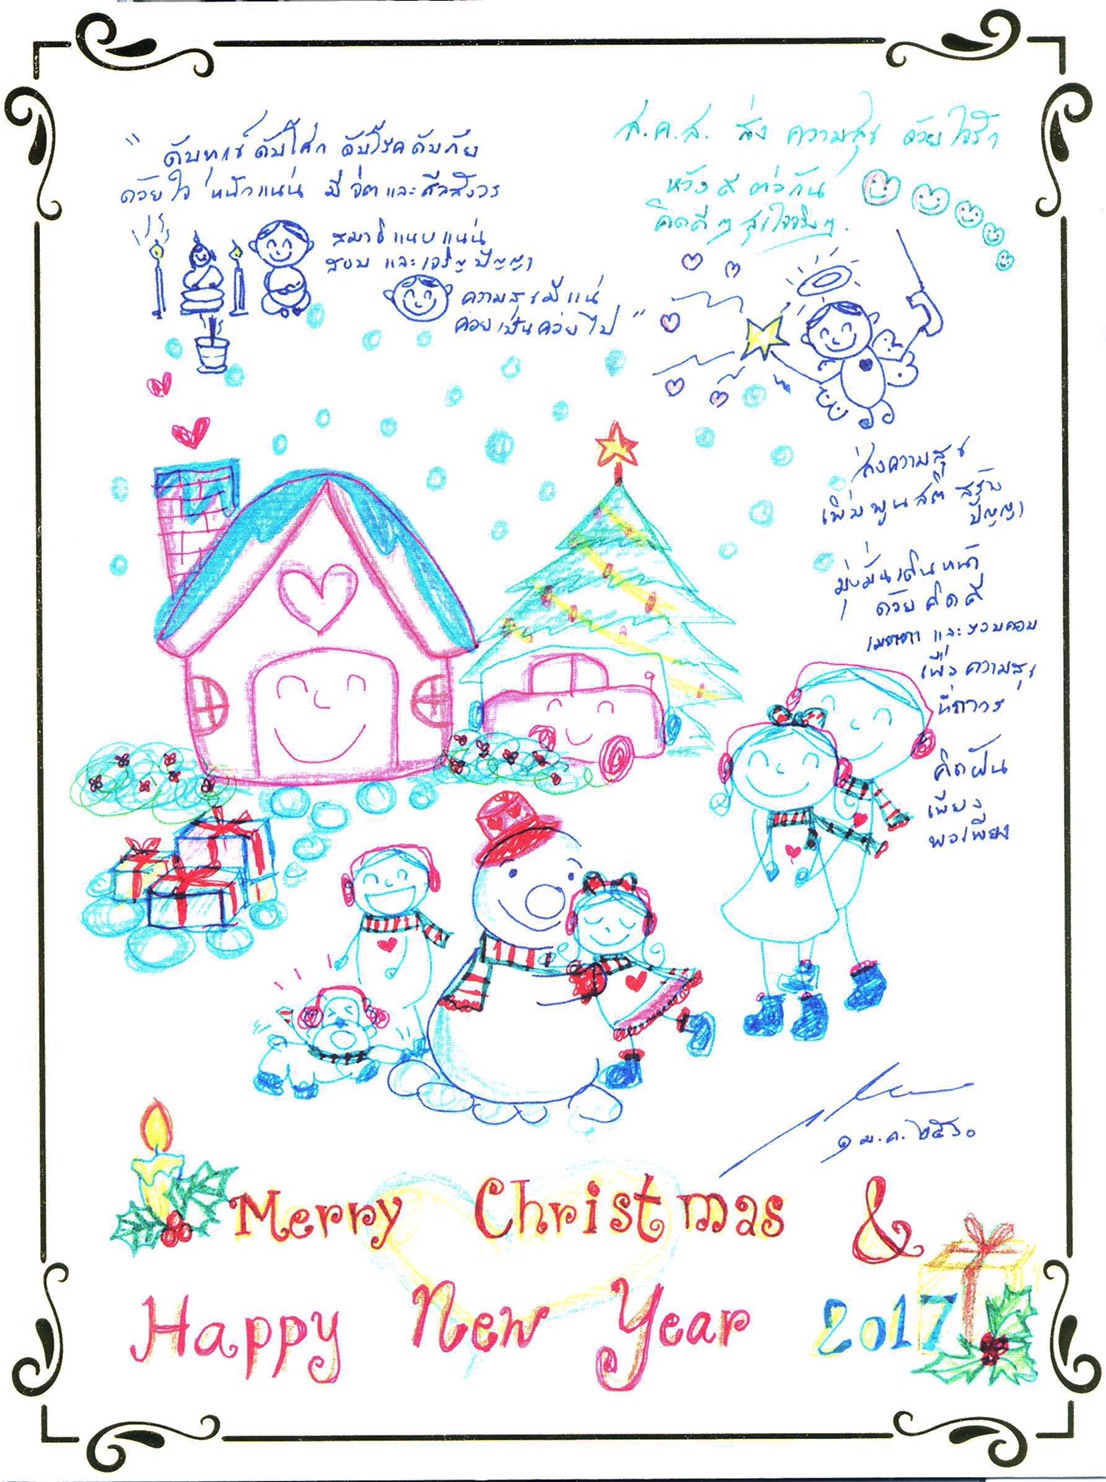 "ดับทุกข์ ดับโศก ดับโรค ดับภัย
ด้วยใจ หนักแน่น มี จิต และ ศีลสังวร
สมาธิ แนบแน่น
สงบ และ เจริญ ปัญญา
ความสุข มี แน่
ค่อยเป็น ค่อยไป"
ส.ค.ส. ส่ง ความสุข ด้วย ใจรัก
หวังดี ต่อกัน
คิดดี ๆ สุขใจจริงๆ.
ส่งความสุข
เพิ่มพูน สติ สร้าง
ปัญญา
มุ่งมั่น เดินหน้า
ด้วย คิดดี
เมตตา และ รอบคอบ
เพื่อ ความสุข
ที่ถาวร
คิดฝัน
เพียง
พอเพียง
๑ ม.ค. ๒๕๖๐
Merry Christmas &
Happy New Year 2017